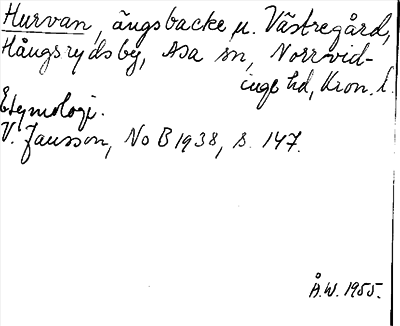 Hurvan, ängsbacke u. Västregård,
Hångsrydsby, Asa sn, Norrvid-
inge hd, Kron. l.
Etymologi.
V. Jansson, NoB 1938, s. 147.
Å.W. 1955.